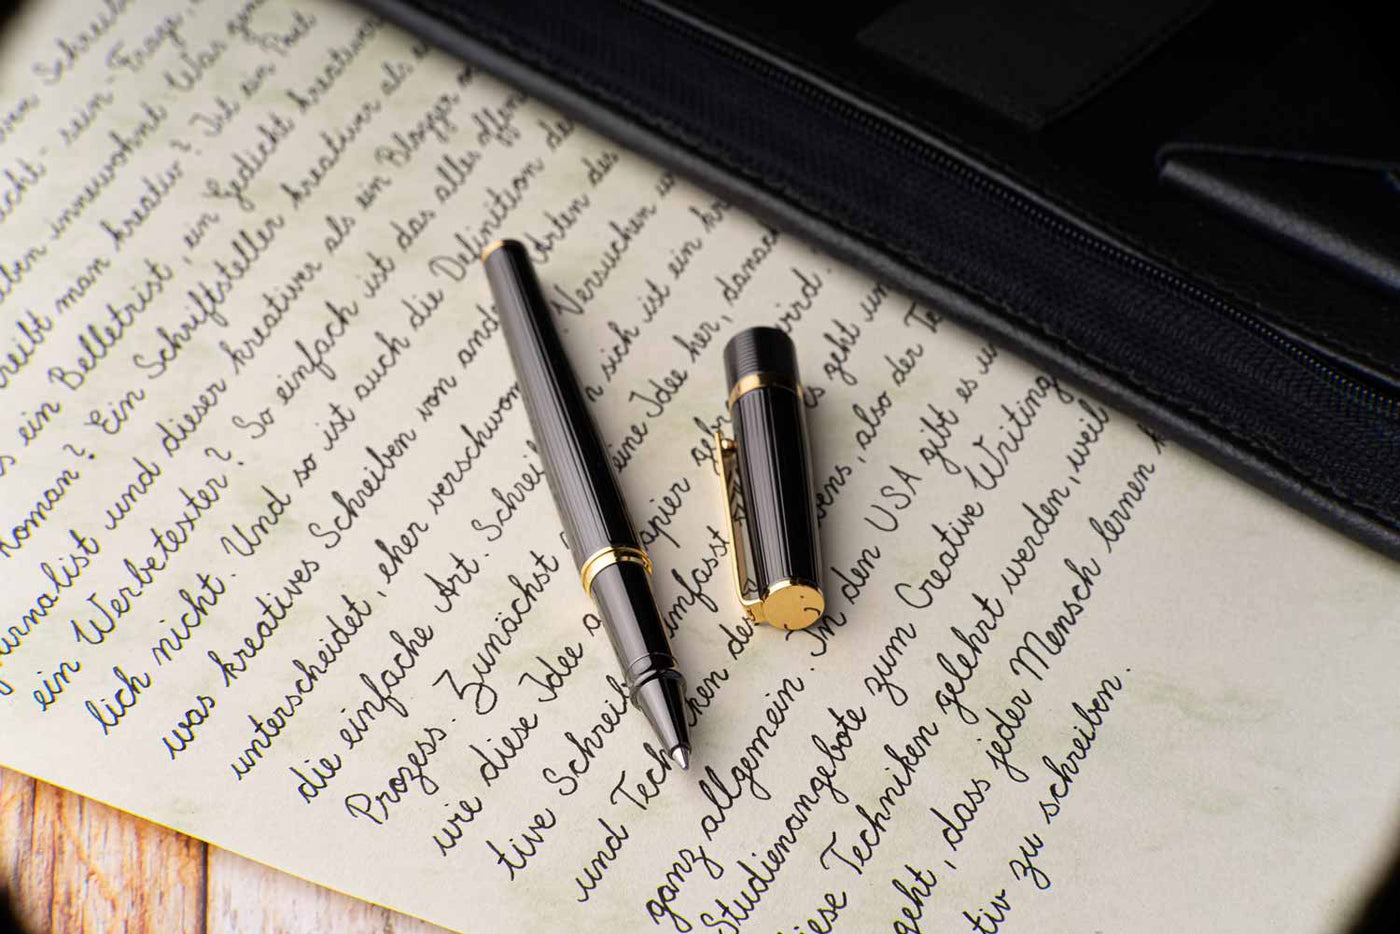 Schreib
rein - Frage,
innewohnt. Was
man kreativ? Ist ein Poet
ein Belletrist, ein Gedicht kreativer
Roman? Ein Schriftsteller kreativer als
urnalist und dieser kreativer als ein Blogger
ein Werbetexter? So einfach ist das alles offen
lich nicht. Und so ist auch die Definition de
was kreatives Schreiben von and Arten des
unterscheidet, eher verschwom Versuchen w
die einfache Art. Schrei n sich ist ein kr
Prozess. Zunächst eine Idee her, danac
wie diese Idee a apier gebr wird.
tive Schreib umfasst es geht um
und Tech ken des bens, also der Te
ganz allgemein. In den USA gibt es u
Studienangebote zum Creative Writing
iese Techniken gelehrt werden, weil
geht, dass jeder Mensch lernen k
tiv zu schreiben.